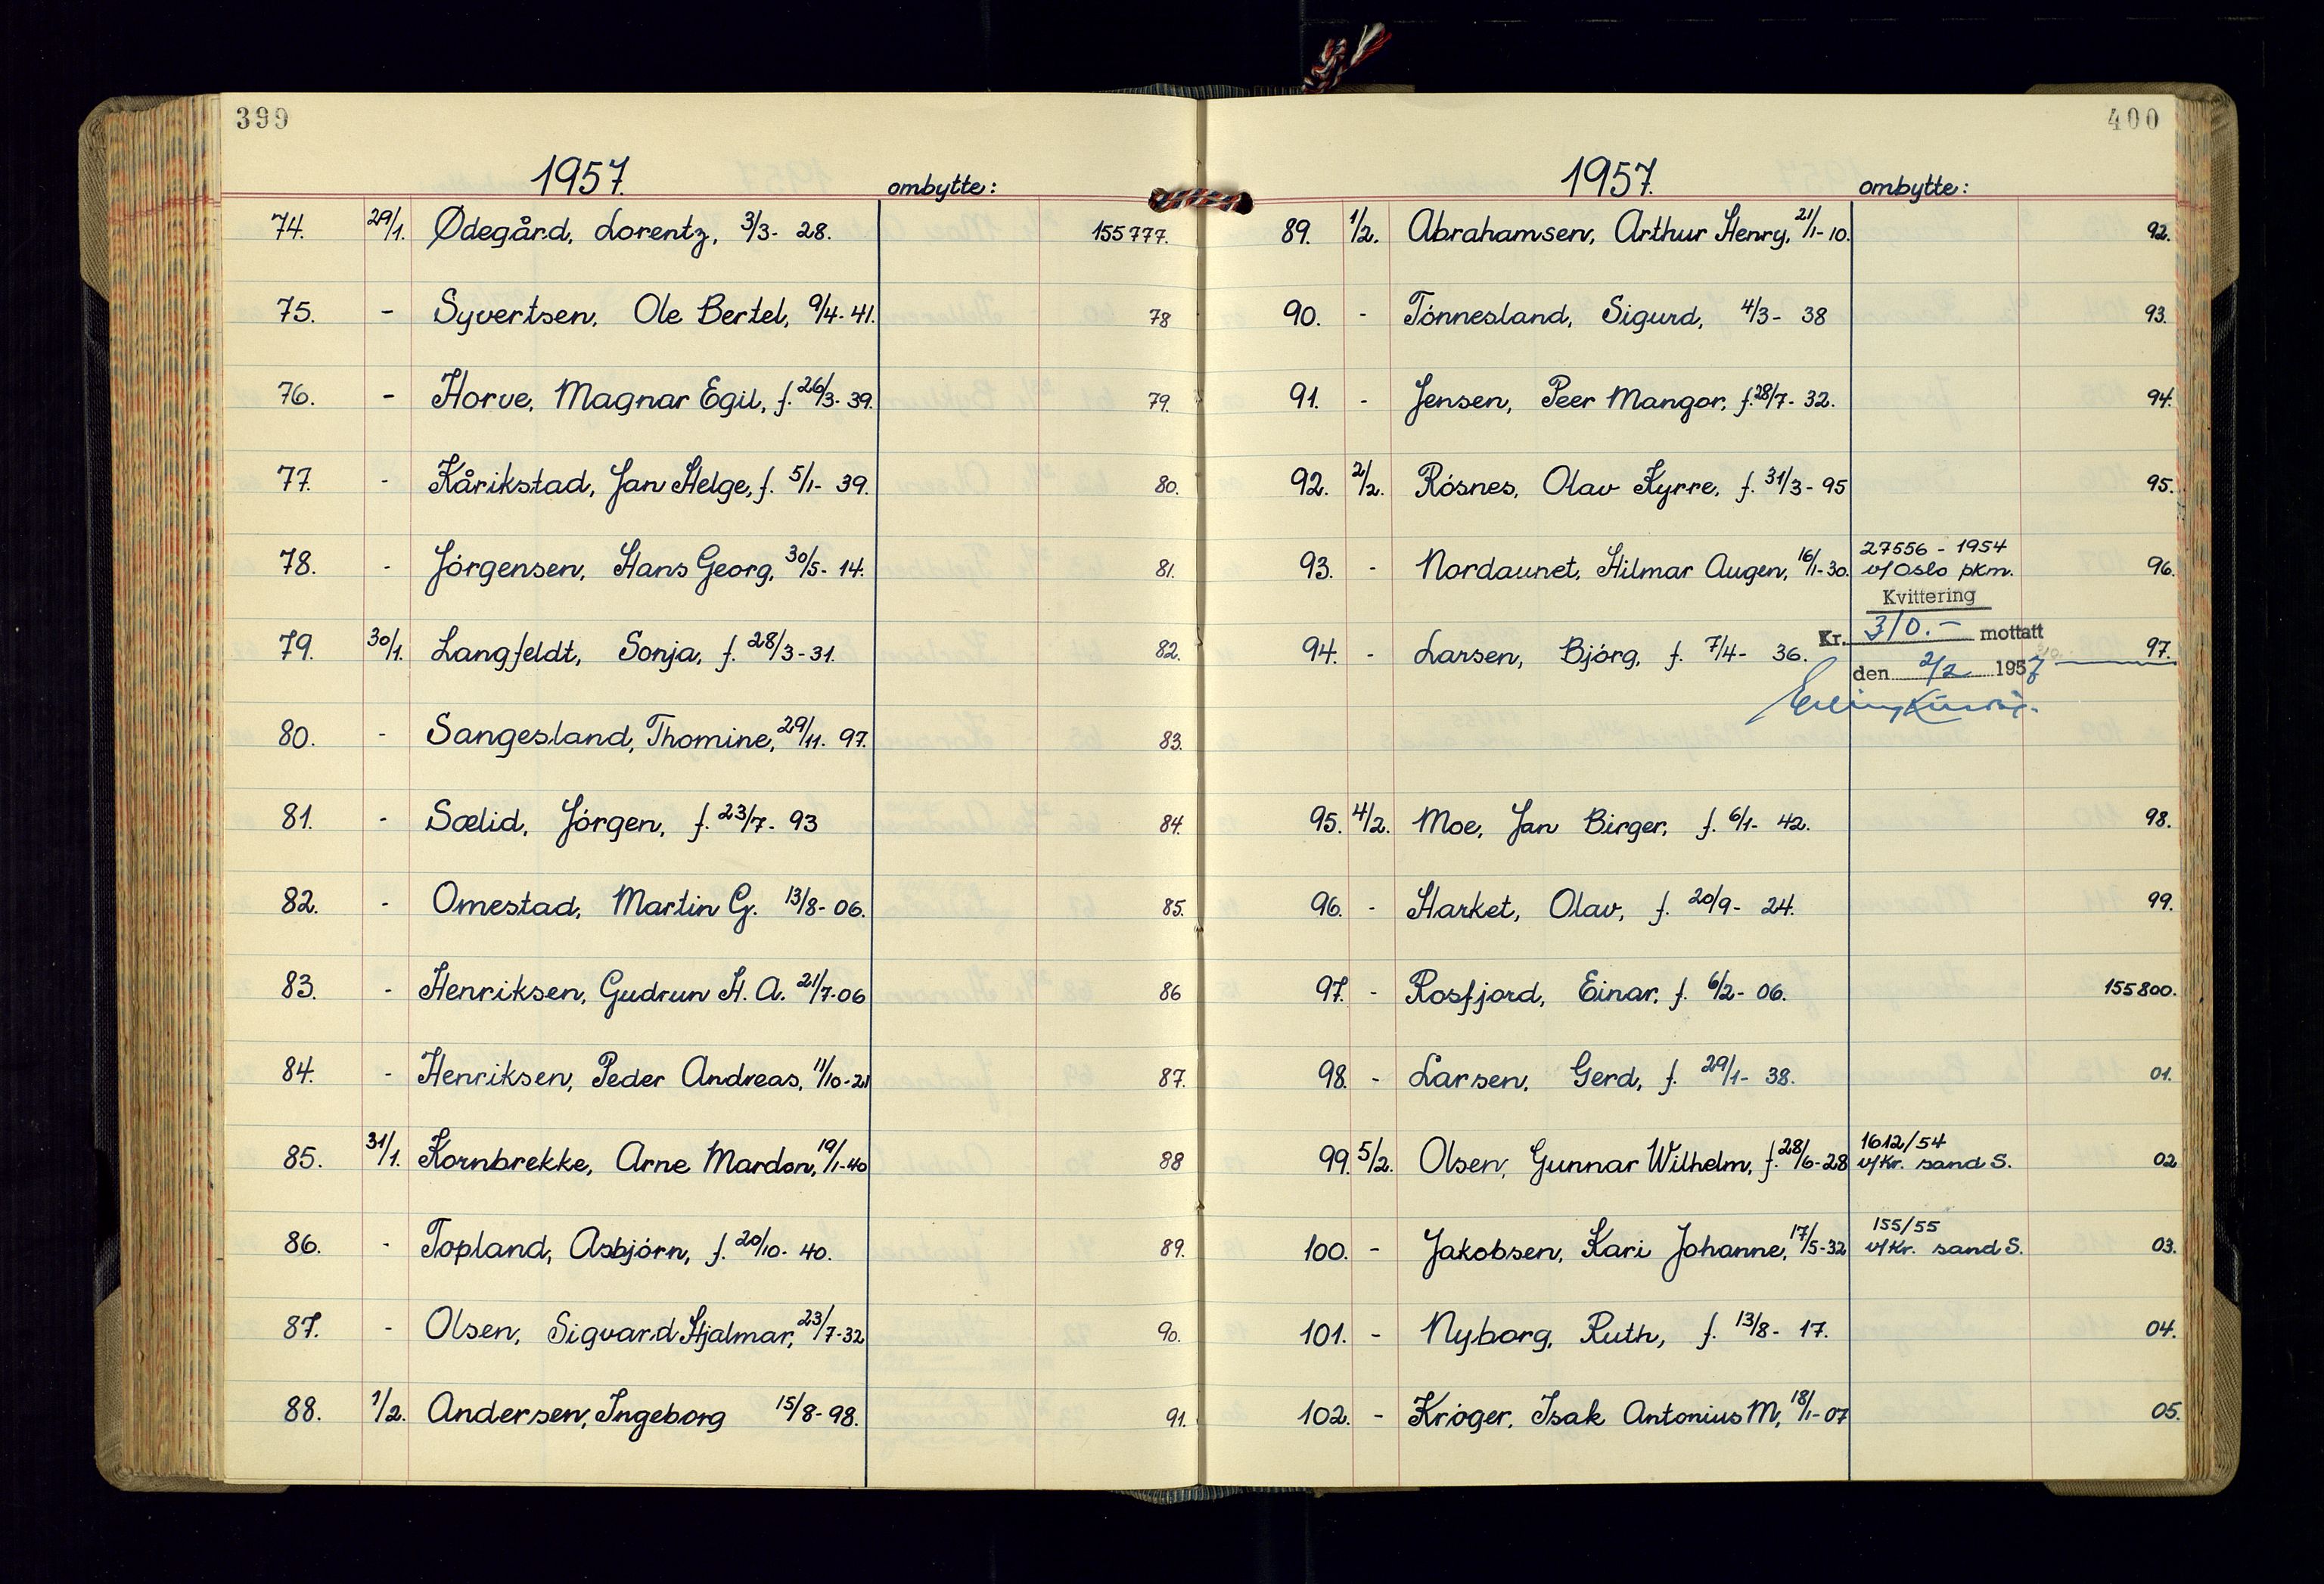 399
1957.
ombytte:
74. 29/1. Ødegård, Lorentz, 3/3- 28. 155777.
75. - Syvertsen, Ole Bertel, 9/4-41. 78
76. - Horve, Magnar Egil, f. 26/3-39. 79.
77. - Kårikstad, Jan Helge, f. 5/1- 39. 80.
78. - Jórgensen, Hans Georg, 30/5- 14. 81.
79. 30/1. Langfeldt, Sonja, f. 28/3-31. 82.
80. - Sangesland, Thomine, 29/11. 97. 83.
81. - Sælid, Jórgen, f. 23/7- 93 84.
82. - Omestad, Martin G. 13/8-06. 85.
83. - Henriksen, Gudrun H. A. 21/7-06 86
84. - Henriksen, Peder Andreas, 11/10-21 87.
85. 31/1. Kornbrekke, Arne Mardon, 19/1-40 88
86. - Topland, Asbjórn, f. 20/10- 40. 89.
87. - Olsen, Sigvard Hjalmar, 23/7-32 90.
88. 1/2. Andersen, Ingeborg 15/8-98. 91.
400
1957.
ombytte:
89. 1/2. Abrahamsen, Arthur Henry, 21/1-10. 92.
90. - Tónnesland, Sigurd, 4/3- 38 93.
91. - Jensen, Peer Mangor, f. 28/7- 32. 94.
92. 2/2. Rósnes, Olav Kyrre, f. 31/3-95 95.
27556 - 1954
93. - Nordaunet, Hilmar Augen, 16/1-30. v/Oslo pkm. 96.
Kvittering
Kr. 310.- mottatt
94. - Larsen, Bjórg, f. 7/4- 36. 97.
den 2/2 1957
95. 4/2. Moe, Jan Birger, f. 6/1- 42. 98.
96. - Harket, Olav, f. 20/9- 24. 99.
97. - Rosfjord, Einar, f. 6/2- 06. 155800.
98. - Larsen, Gerd, f. 29/1- 38. 01.
1612/54
99. 5/2. Olsen, Gunnar Wilhelm, f. 28/6-28 v/Kr. sand S. 02
155/55
100. - Jakobsen, Kari Johanne, 17/5-32 v/Kr. sand S. 03.
101. - Nyborg, Ruth, f. 13/8- 17. 04.
102. - Króger, Isak Antonius M, 18/1-07 05.